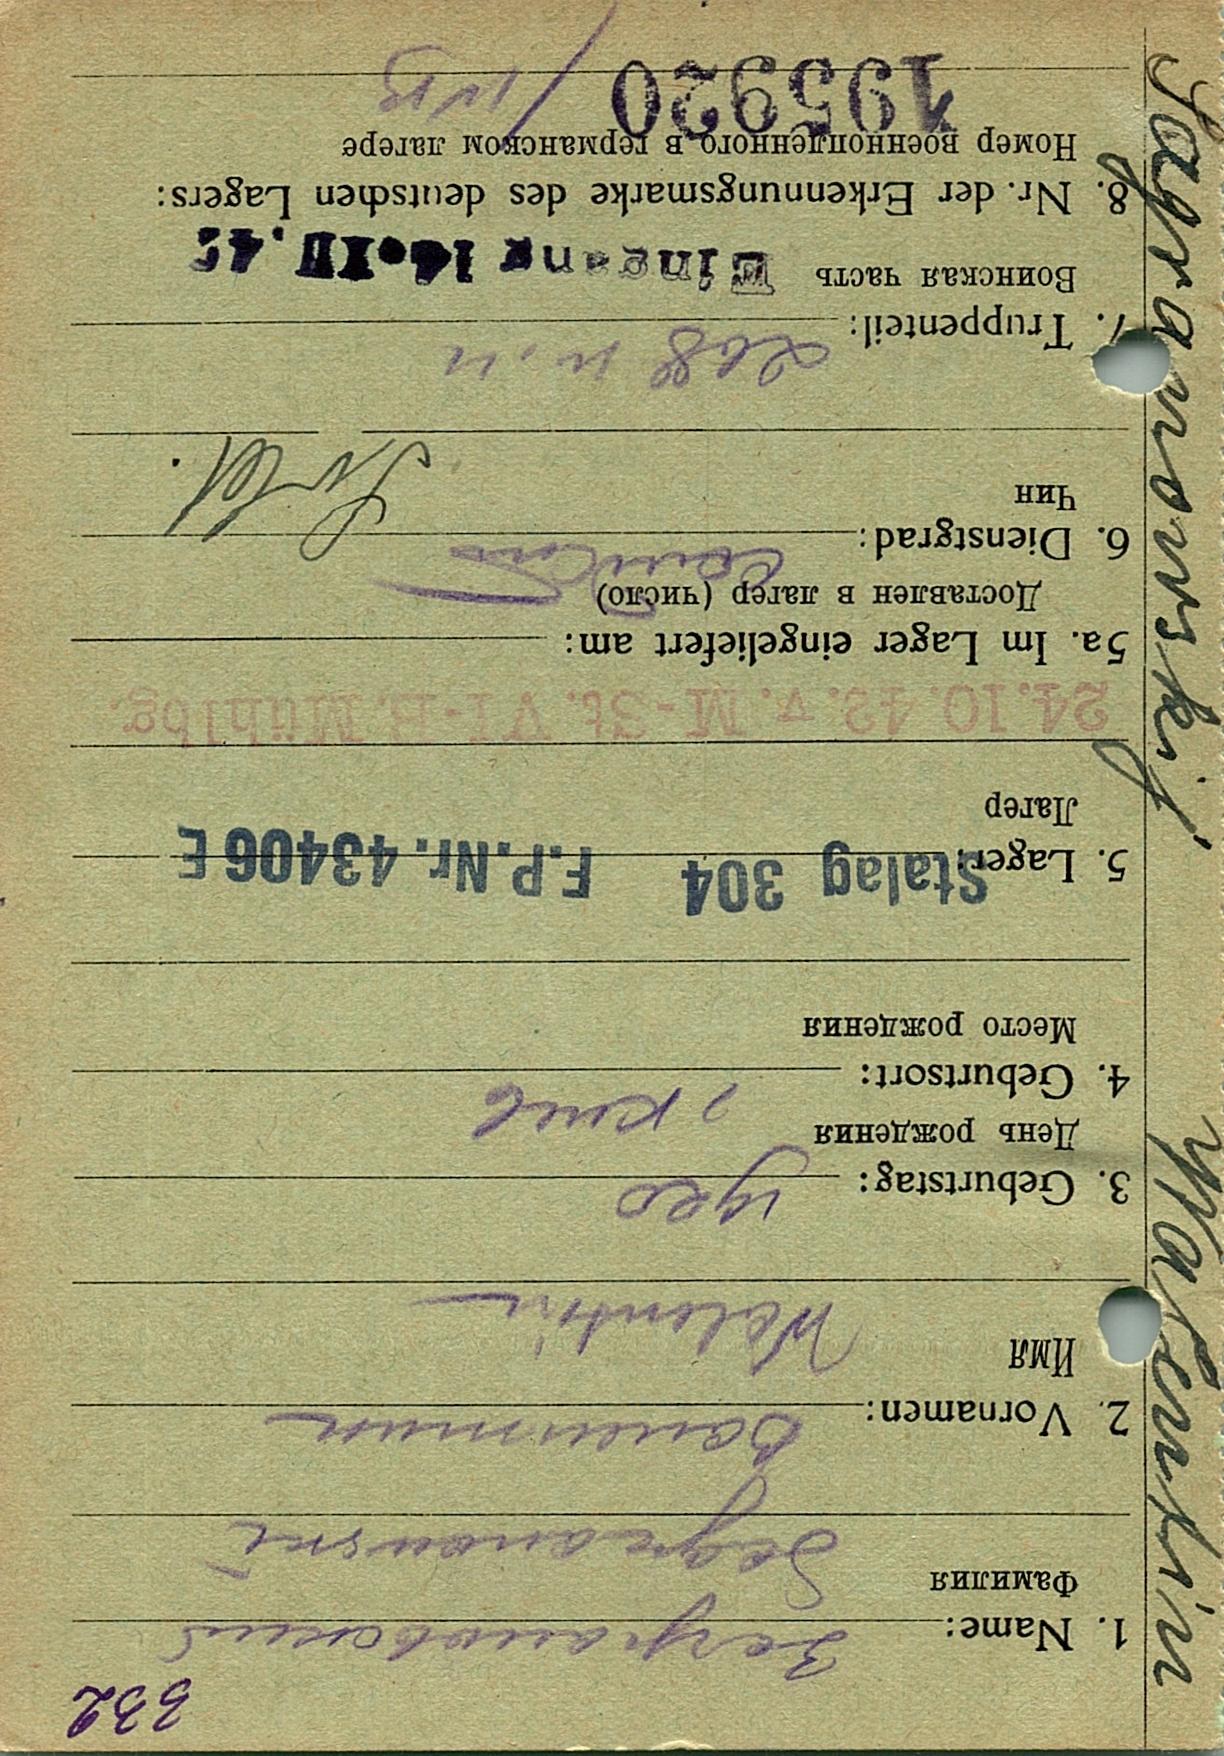 Sagranowskij Walentin
332
1. Name: Заграновский
Фамилия
Sagranowski
2. Vornamen: Валентин
Имя
Walentin
3. Geburtstag: 1920
День рождения
, Киев
4. Geburtsort:
Место рождения
5. Lager: Stalag 304 F.P. Nr. 43406 E
Лагер
24.10.42. v. M.-St. VI-H. Mühlbg.
5a. Im Lager eingeliefert am:
Доставлен в лагер (число)
6. Dienstgrad: солдат Sold.
Чин
268 п.п
7. Truppenteil:
Воинская часть Eingang 14. IV. 42
8. Nr. der Erkennungsmarke des deutschen Lagers:
Номер военнопленного в германском лагере
195920 / IV B